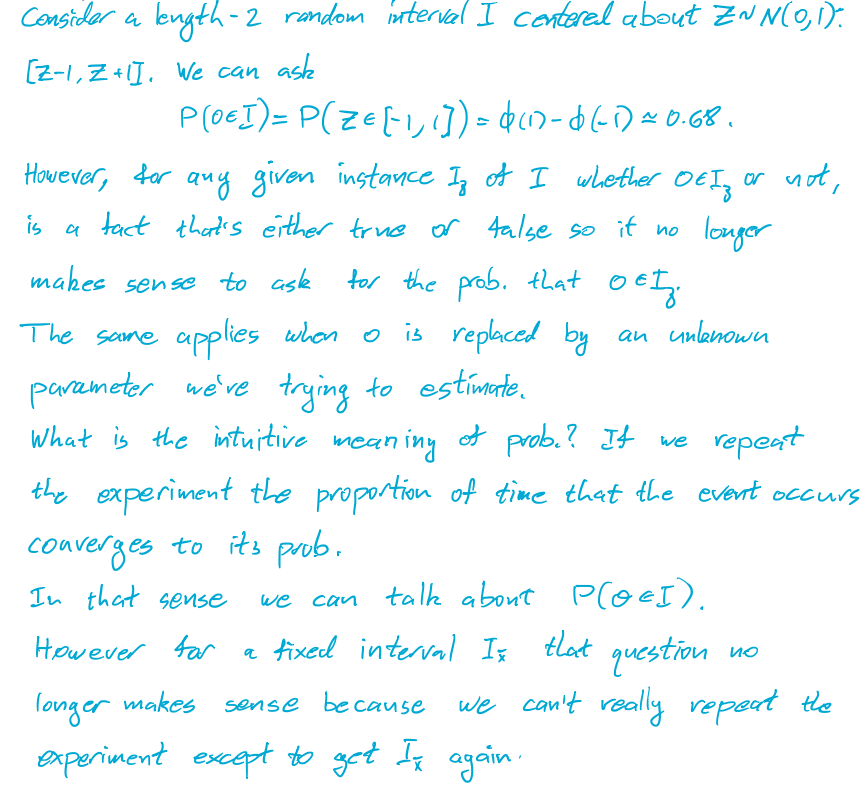 Consider a length-2 random interval I centered about Z~N(0,1):
[Z-1, Z+1]. We can ask
P(0∈I)= P(Z∈[-1,1]) = ϕ(1)-ϕ(-1) ≈ 0.68.
However, for any given instance I_z of I whether 0∈I_z or not,
is a fact that's either true or false so it no longer
makes sense to ask for the prob. that 0∈I_z.
The same applies when 0 is replaced by an unknown
parameter we've trying to estimate.
What is the intuitive meaning of prob.? If we repeat
the experiment the proportion of time that the event occurs
converges to its prob.
In that sense we can talk about P(θ∈I).
However for a fixed interval I_x̄ that question no
longer makes sense because we can't really repeat the
experiment except to get I_x̄ again.